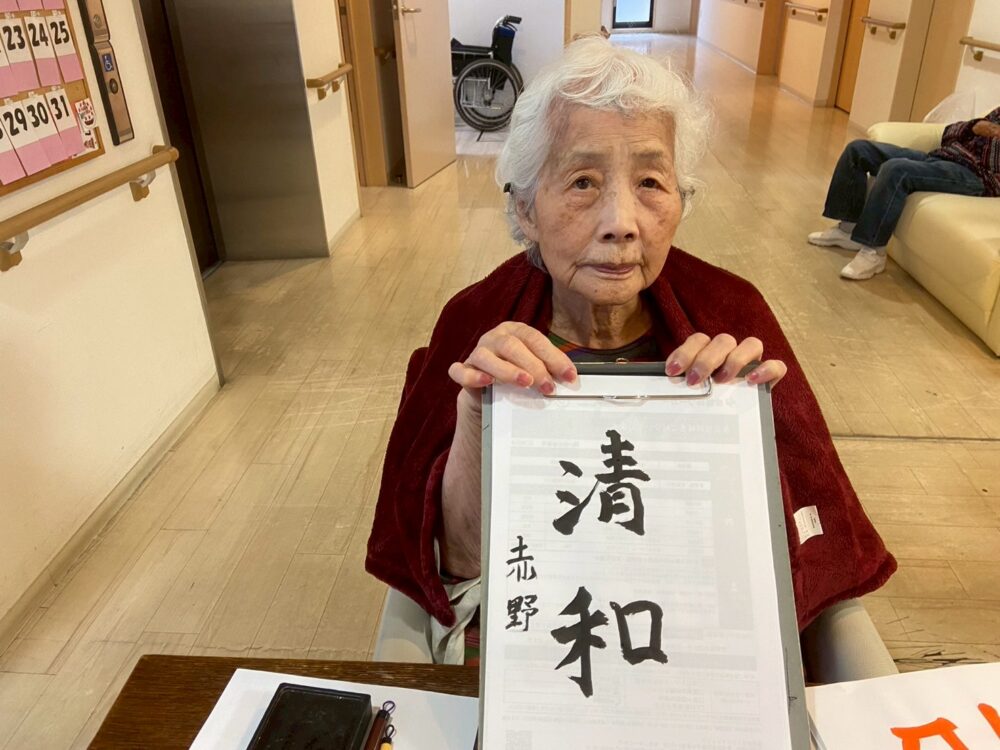 清和
赤野
23 24 25
29 30 31